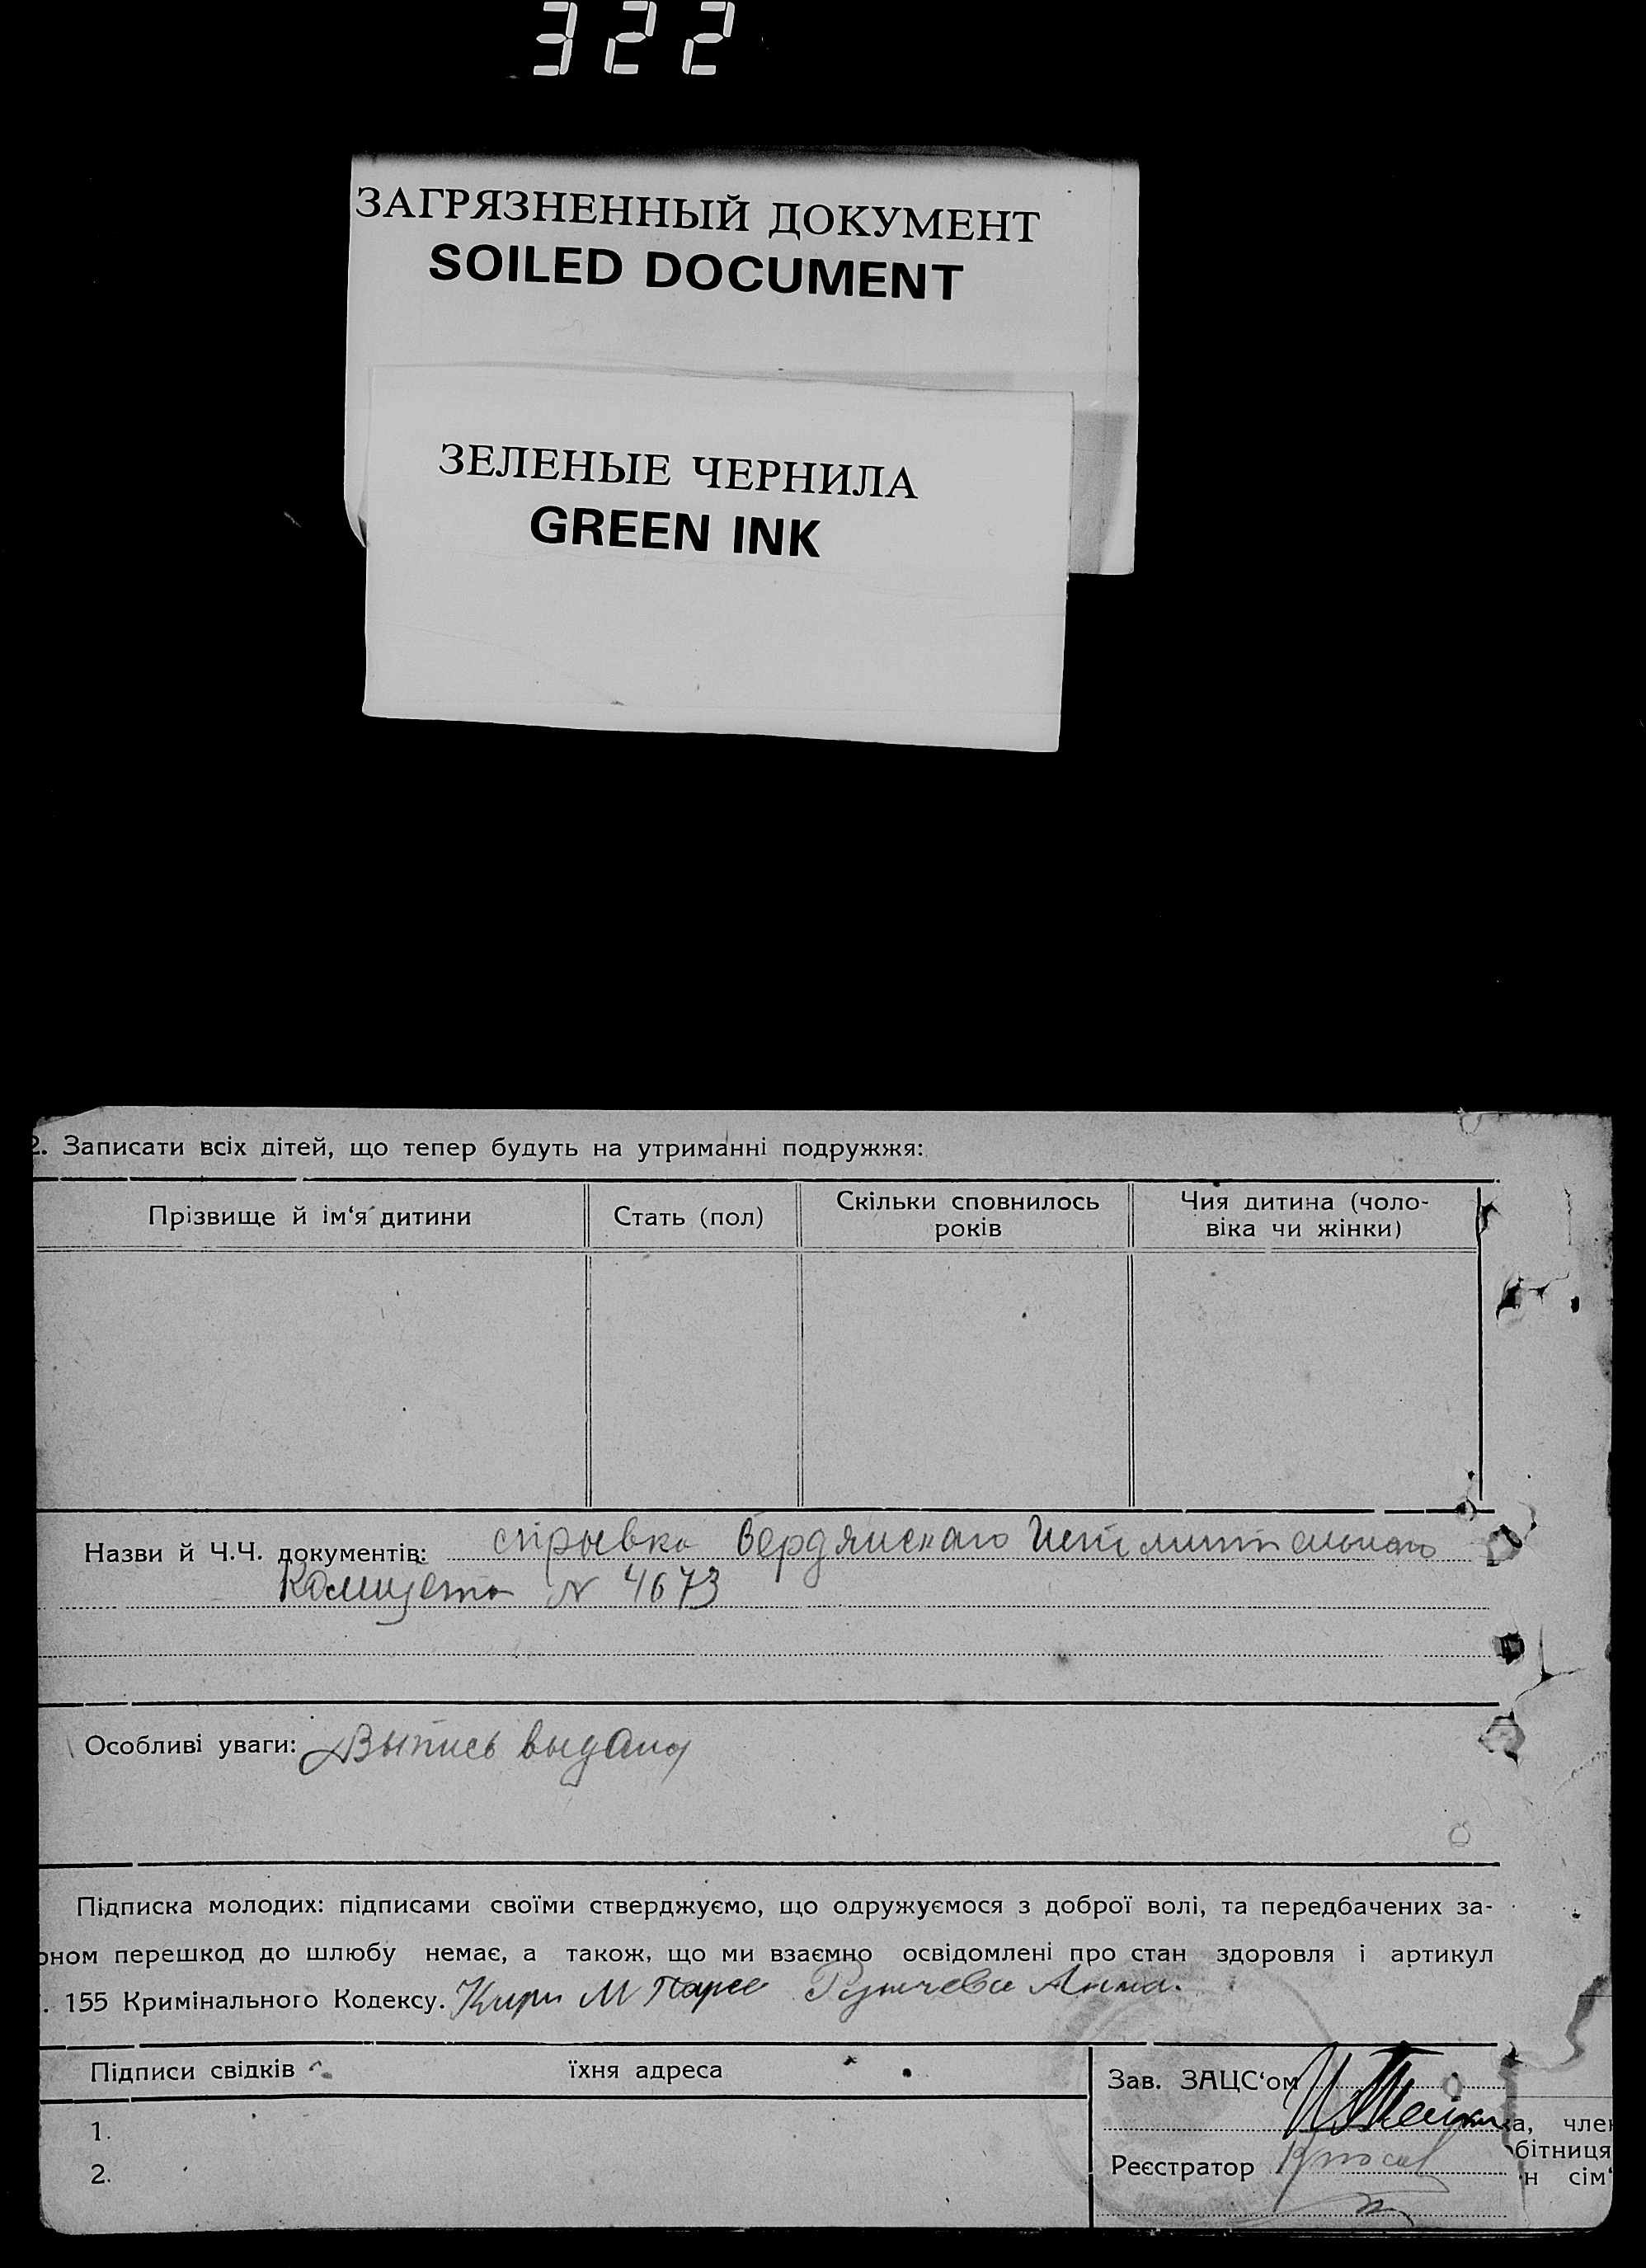 322
ЗАГРЯЗНЕННЫЙ ДОКУМЕНТ
SOILED DOCUMENT
ЗЕЛЕНЫЕ ЧЕРНИЛА
GREEN INK
2. Записати всіх дітей, що тепер будуть на утриманні подружжя:
Прізвище й ім‘я дитини
Стать (пол)
Скільки сповнилось
років
Чия дитина (чоло-
віка чи жінки)
Назви й Ч.Ч. документів: Бердянскаго
Комитета N 4673
Особливі уваги: Выпись выдана
Підписка молодих: підписами своїми стверджуємо, що одружуємося з доброї волі, та передбачених за-
оном перешкод до шлюбу немає, а також, що ми взаємно освідомлені про стан здоровля і артикул
. 155 Кримінального Кодексу. Анна.
Підписи свідків
їхня адреса
Зав. ЗАЦС‘ом
1.
2.
Реєстратор
ка, член
бітниця
н сім‘